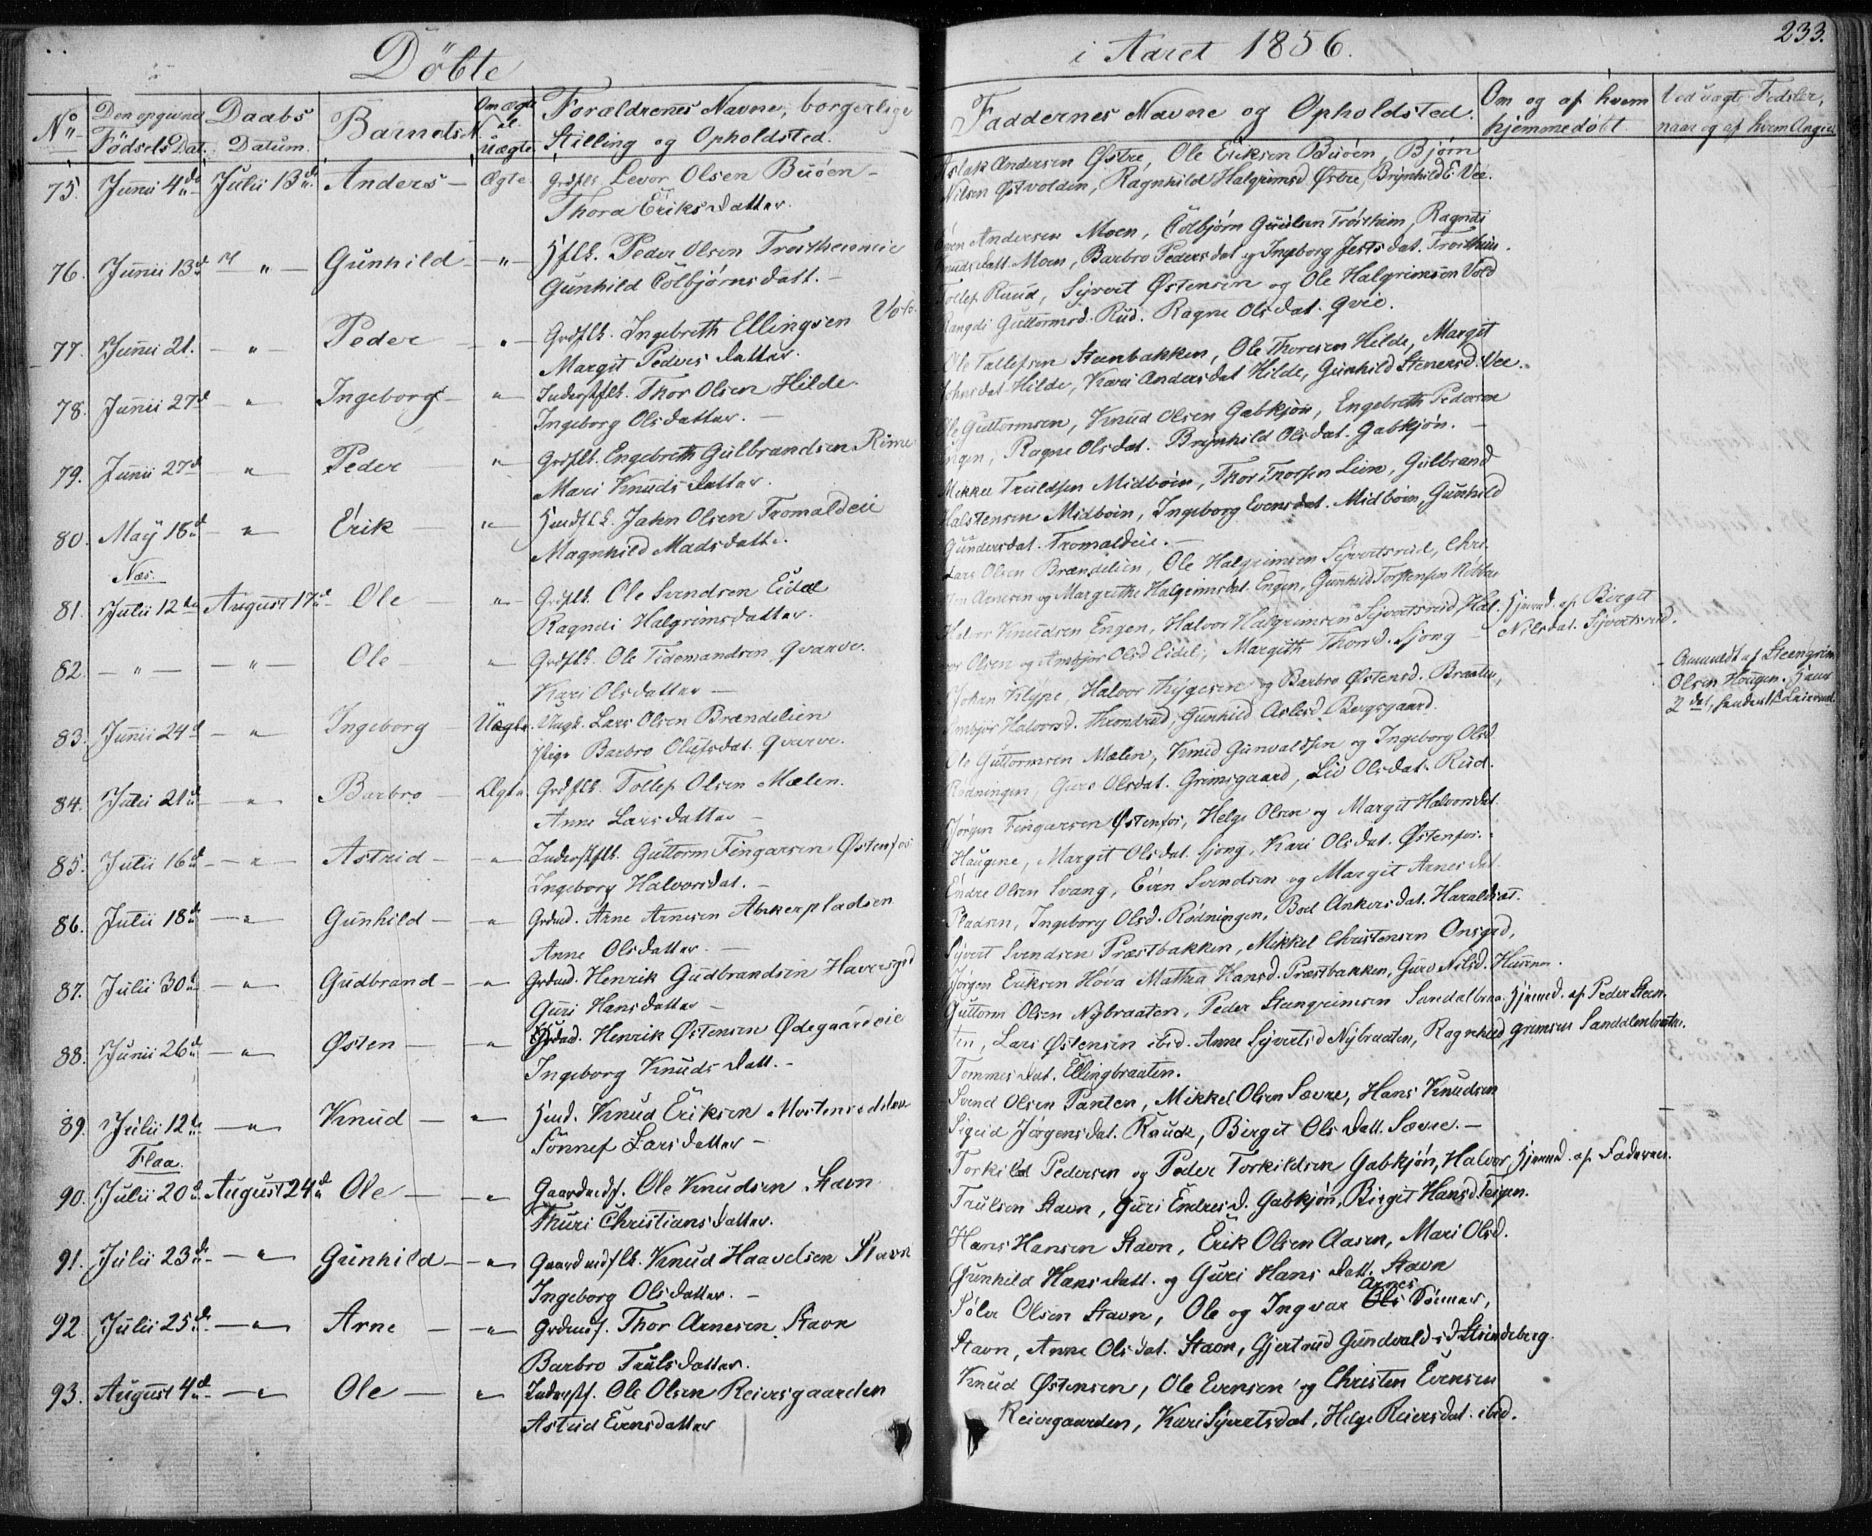 Döbte
i Aaret 1856.
233.
No
Den opgivne Födsels Dat.
Daabs Datum.
Barnets N.
Om ægte el. uægte
Foraldrenes Navne, borgerlige Stilling og Opholdsted.
Faddernes Navne og Opholdsted.
Om og af hvem hjemmedöbt.
Ved uægte Fødsler, naar og af hvem Angivet
75. Junii 4de Julii 13de Anders – Ægte Grdflk. Levor Olsen Buöen –
Thora Eriksdatter.
Aslak Andersen Østre, Ole Eriksen Buöen, Bjørn
Nilsen Østvolden, Ragnhild Halgrimsd Østre, Brynhild E. Vee.
76. Junii 13de " – Gunhild – " – Hflk. Peder Olsen Trostheimeie
Gunhild Colbjørnsdatt. –
Even Andersen Moen, Colbjørn Guulsen Trostheim, Ragndi
Knudsdatt. Moen, Barbro Pedersdat og Ingeborg Jestsdat. Trostheim.
77. Junii 21. – " – Peder – " – Grdflk. Ingebreth Ellingsen
Margit Pedersdatter.
Tollef Ruud, Syvert Østensen og Ole Halgrimsen Vold
Rangdi Guttormsd. Rud. Ragne Olsdat. Qvie.
78. Junii 27d " Ingeborg – " – Inderstflk. Thor Olsen Hilde
Ingeborg Olsdatter. –
Ole Tollefsen Steenbakken, Ole Thoresen Hilde, Margit
Johnsdat Hilde, Kari Andersdat Hilde, Gunhild Stenersd. Vee.
79. Junii 27d " Peder " Grdflk. Engebreth Gulbrandsen Rime
Mari Knudsdatter.
Ole Guttormsen, Knud Olsen Gabkjøn, Engebreth Pedersen
Engen, Ragne Olsdat. Brynhild Olsdat. Gabkjön. –
80. May 18d – " – Erik – " Hmdflk. Jahn Olsen Tromaldeie
Magnhild Madsdatt.
Mikkel Truldsen Midböen, Thor Thorsen Lien, Gulbrand
Halstensen Midböen, Ingeborg Evensdat. Midböen, Gunhild
Gundersdat. Tromaldeie. –
Næs.
81. Julii 12te August 17de Ole – " Grdflk. Ole Svendsen Eidal
Ragndi Halgrimsdatter.
Lars Olsen Brændelien, Ole Halgrimsen Syvertsrud, Chri-
sten Arnesen og Margrethe Halgrimsdat. Engen, Gunhild Torstensen Ribber
Hjemd. af Birgit
Nilsdat. Syvertsrud.
82. – " – – " – Ole " Grdflk. Ole Tidemandsen Qvarve.
Kari Olsdatter –
Halvor Knudsen Engen, Halvor Halgrimsen Syvertsrud, Hal-
vor Olsen og Ambjør Olsd Eidel, Margith Thorsd. Sjong –
83. Junii 24d – " Ingeborg – Uægte. Ungk. Lars Olsen Brændelien
Pige Barbro Olufsdat. Qvarve.
Johan Klype, Halvor Thygesen og Barbro Østensd. Braaten,
Ambjør Halvorsd. Throndrud, Gunhild Aslesd. Bergsgaard.
Anmeldt af Steengrim
Olsen Haugen. Hans
2det, hendes 1ste Leiermaal
84. Julii 21d – " Barbro – Ægte. Grdflk. Tollef Olsen Mælen.
Anne Larsdatter –
Ole Guttormsen Mælen, Knud Gunvaldsen og Ingeborg Olsd.
Rødningen, Guro Olsdat. Grimsgaard, Liv Olsdat. Rud.
85. Julii 16d – " – Astrid – – " Inderstflk. Guttorm Fingarsen Østenfos
Ingeborg Halvorsdat. –
Jørgen Fingarsen Østenfos, Helge Olsen og Margit Halvorsdat
Haugene, Margit Olsdat. Sjong, Kari Olsdat. Østenfos.
86. Julii 18d – " – Gunhild – – " Grdmd. Arne Arnesen Akkerpladsen
Anne Olsdatter. –
Endre Olsen Svang, Even Svendsen og Margit Arnesdat
Pladsen, Ingeborg Olsd. Rødningen, Bod Ankersdat. Haraldset.
87. Julii 30d – " Gudbrand – – " Grdmd. Henrik Gudbrandsen Haversgrd
Guri Hansdatter –
Syvert Svendsen Præstbakken, Mikkel Christensen Onsgrd,
Jørgen Eriksen Höva, Mathea Hansd. Præstbakken, Guro Nilsd. Husem.
88. Junii 26d – " Østen – – " Hmd. Henrik Østensen Ødegaardeie
Ingeborg Knudsdatt. –
Guttorm Olsen Nybraaten, Peder Stengrimsen Sandalbraa-
ten, Lars Østensen ibid. Anne Syvertsd Nybraaten, Ragnhild
Tommesdat. Ellingbraaten.
Hjemmd. af Peder Steen-
grimsen Sandalenbraaten.
89. Julii 12te – " Knud – " Hmd. Knud Eriksen
Sönnef Larsdatter –
Svend Olsen Panten, Mikkel Olsen Sævre, Hans Knudsen
Sigrid Jörgensdat. Rauck, Birgit Olsdatt. Sævre. –
Flaa.
90. Julii 20d. August 24de Ole – – " Gaardmdf. Ole Knudsen Stavn
Thuri Christiansdatter.
Torkild Pedersen og Peder Torkildsen Gabkjøn, Halvor
Trulsen Stavn, Guri Endresd. Gabkjøn, Birgit Hansd. Teigen.
Hjemmd. af Faderen.
91. Julii 23de – " Gunhild – – " Gaardmdflk. Knud Haavelsen Stavn
Ingeborg Olsdatter. –
Hans Hansen Stavn, Erik Olsen Aasen, Mari Olsd.
Gunhild Hansdatt. og Guri Hansdatt. Stavn
92. Julii 25de – " Arne – – " Grdmdf. Thor Arnesen Stavn
Barbro Trulsdatter.
Sölve Olsen Stavn, Ole og Ingvar Ols Arnes Sönner,
Stavn, Anne Olsdat. Stavn, Gjertrud Gundvaldsd Strindeberg.
93. August 4de – " Ole – " Inderstf. Ole Olsen Reiersgaarden
Astrid Evensdatter
Knud Østensen, Ole Evensen og Christen Evensen
Reiersgaarden, Kari Syvertsdat, Helge Reiersdat. ibid.